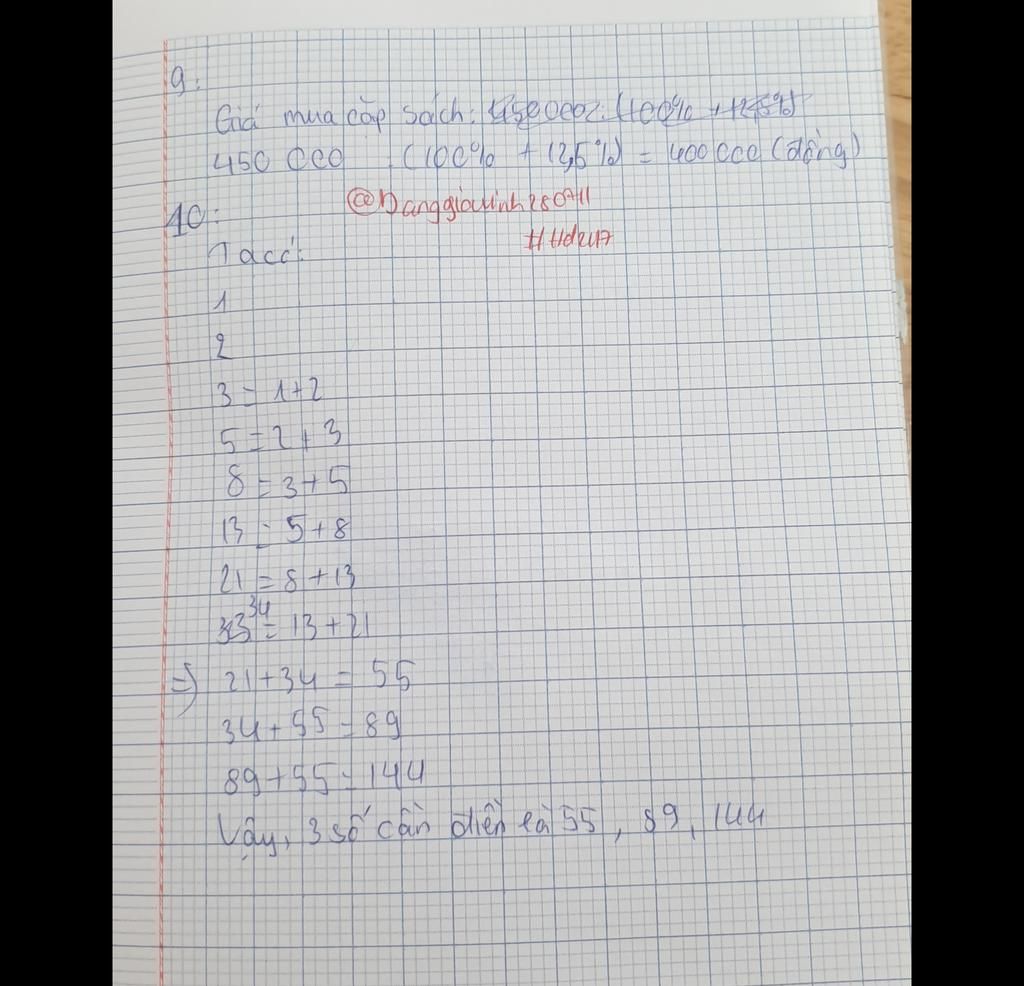 9:
Giá mua cặp sách: 450000: (100% + 12,5%)
450 000 : (100% + 12,5%) = 400 000 (đồng)
10:
@Danggiavinh280711
Ta có:
1
2
3 = 1+2
5 = 2 + 3
8 = 3 + 5
13 = 5 + 8
21 = 8 + 13
33 34 = 13 + 21
=> 21 + 34 = 55
34 + 55 = 89
89 + 55 = 144
Vậy, 3 số cần điền là 55, 89, 144